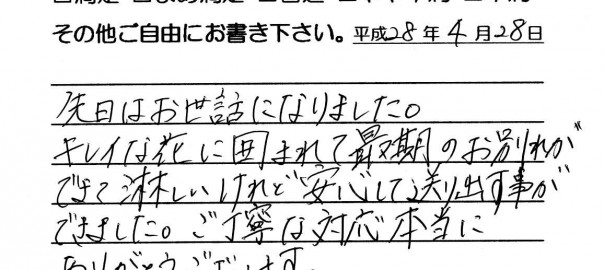 その他ご自由にお書き下さい。平成28年4月28日
先日はお世話になりました。
キレイな花に囲まれて最期のお別れが
できて淋しいけれど安心して送り出す事が
できました。ご丁寧な対応本当に
ありがとうございます。